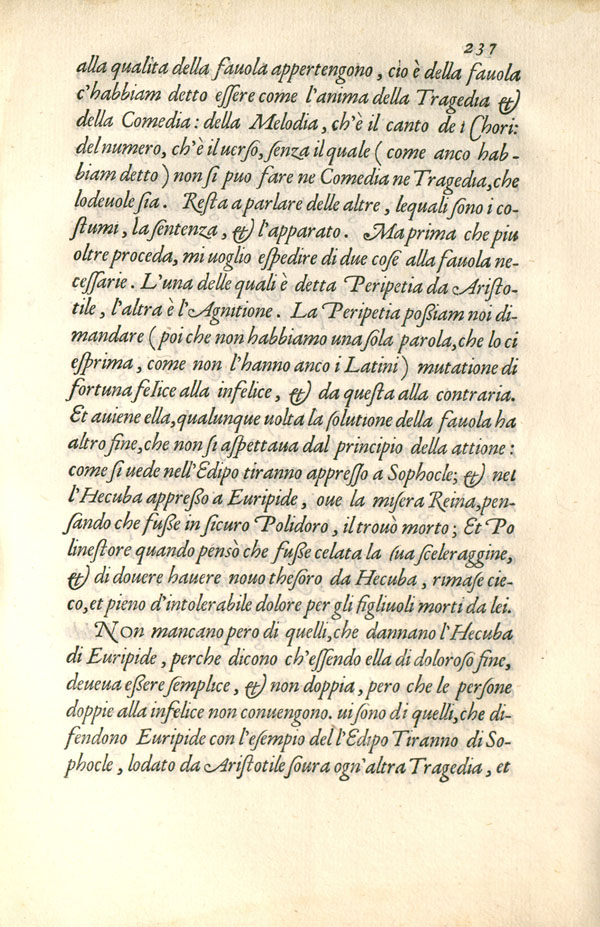 237
alla qualita della fauola appertengono, cio è della fauola
c'habbiam detto eſſere come l'anima della Tragedia &
della Comedia: della Melodia, ch'è il canto de i Chori:
del numero, ch'è il uerſo, ſenza il quale (come anco hab-
biam detto) non ſi puo fare ne Comedia ne Tragedia, che
lodeuole sia. Reſta a parlare delle altre, lequali ſono i co-
ſtumi, la ſentenza, & l'apparato. Ma prima che piu
oltre proceda, mi uoglio eſpedire di due coſe alla fauola ne-
ceſſarie. L'una delle quali è detta Peripetia da Ariſto-
tile, l'altra è l'Agnitione. La Peripetia poßiam noi di-
mandare (poi che non habbiamo una ſola parola, che lo ci
eſprima, come non l'hanno anco i Latini) mutatione di
fortuna felice alla infelice, & da queſta alla contraria.
Et auiene ella, qualunque uolta la ſolutione della fauola ha
altro fine, che non ſi aſpettaua dal principio della attione:
come ſi uede nell'Edipo tiranno appreſſo a Sophocle; & nel
l'Hecuba appreßo a Euripide, oue la miſera Reina, pen-
ſando che fuße in ſicuro Polidoro, il trouò morto; Et Po
lineſtore quando pensò che fuße celata la ſua ſceleraggine,
& di douere hauere nouo theſoro da Hecuba, rimaſe cie-
co, et pieno d'intolerabile dolore per gli figliuoli morti da lei.
Non mancano pero di quelli, che dannano l'Hecuba
di Euripide, perche dicono ch'eſſendo ella di doloroſo fine,
deueua eßere ſemplice, & non doppia, pero che le perſone
doppie alla infelice non conuengono. ui ſono di quelli, che di-
fendono Euripide con l'eſempio del l'Edipo Tiranno di So-
phocle, lodato da Ariſtotile ſoura ogn'altra Tragedia, et